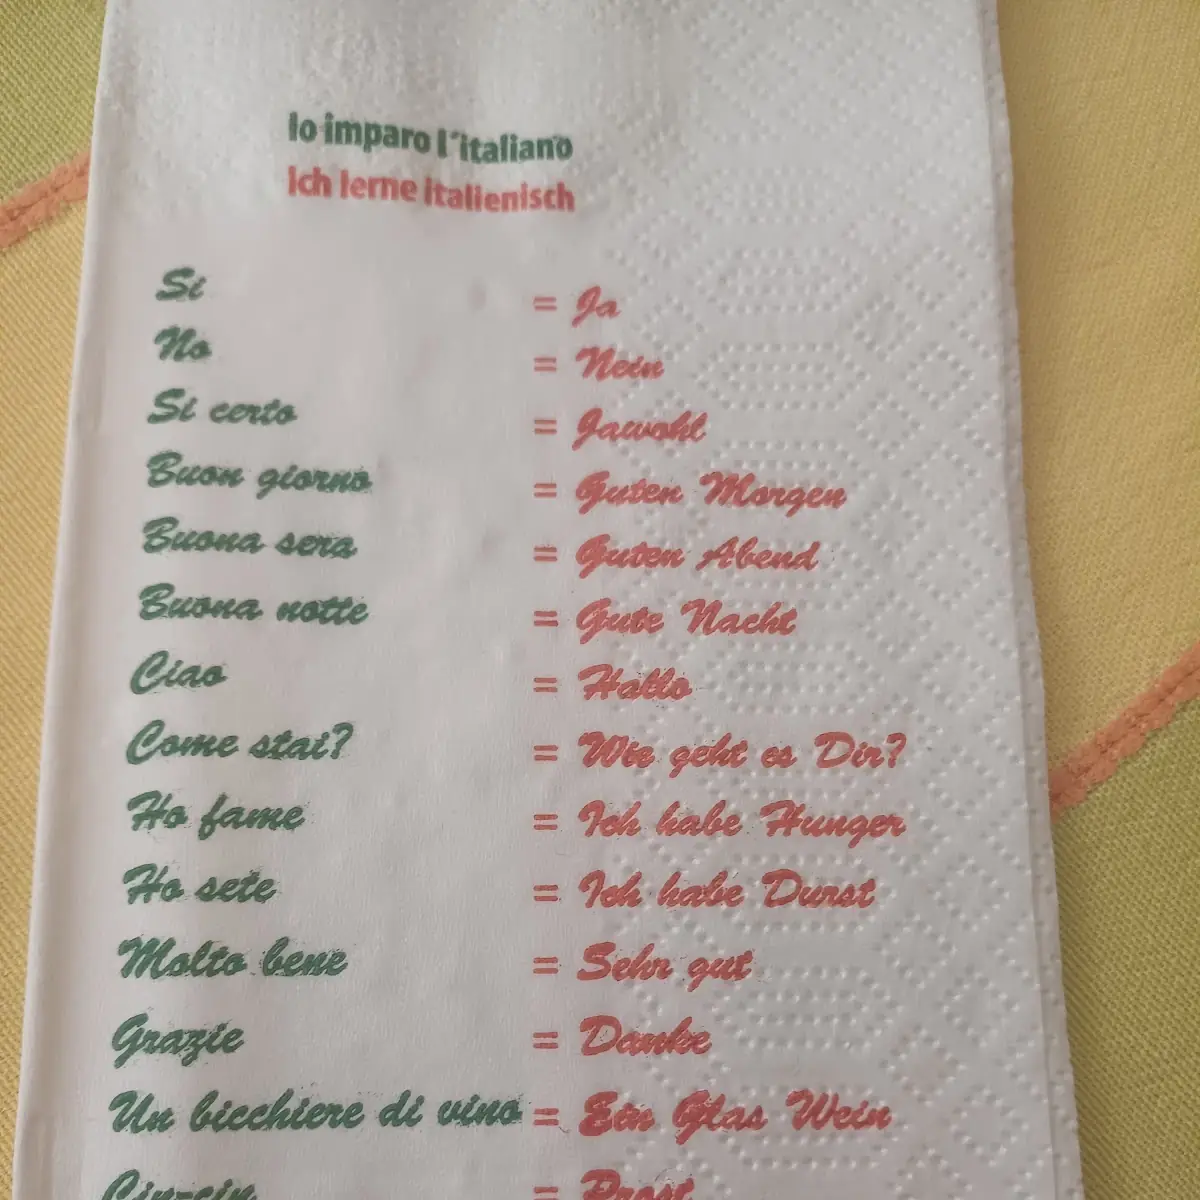 Io imparo l´italiano
Ich lerne italienisch
Si = Ja
No = Nein
Si certo = Jawohl
Buon giorno = Guten Morgen
Buona sera = Guten Abend
Buona notte = Gute Nacht
Ciao = Hallo
Come stai? = Wie geht es Dir?
Ho fame = Ich habe Hunger
Ho sete = Ich habe Durst
Molto bene = Sehr gut
Grazie = Danke
Un bicchiere di vino = Ein Glas Wein
Cin-cin = Prost